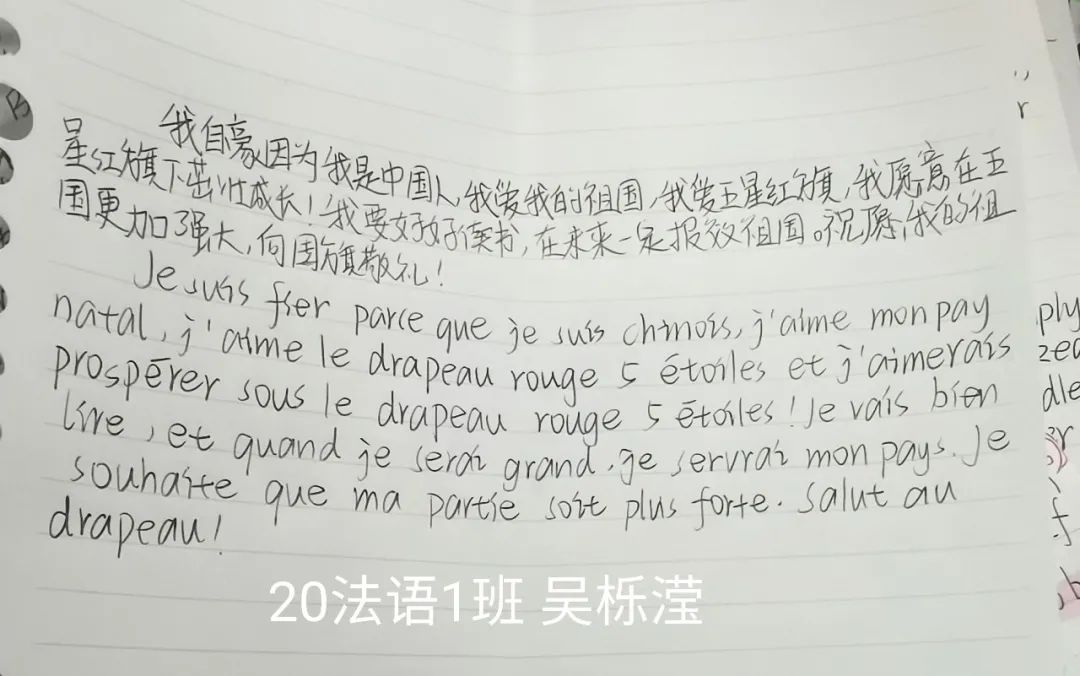 我自豪因为我是中国人,我爱我的祖国,我爱五星红旗,我愿意在五
星红旗下茁壮成长!我要好好读书,在未来一定报效祖国。祝愿,我的祖
国更加强大,向国旗敬礼!
Je suis fier parce que je suis chinois, j'aime mon pay
natal, j'aime le drapeau rouge 5 étoiles et j'aimerais
prospérer sous le drapeau rouge 5 étoiles! Je vais bien
lire, et quand je serai grand, je servrai mon pays. Je
souhaite que ma partie soit plus forte. Salut au
drapeau!
20法语1班 吴栎滢
B
r
ply
dle
f